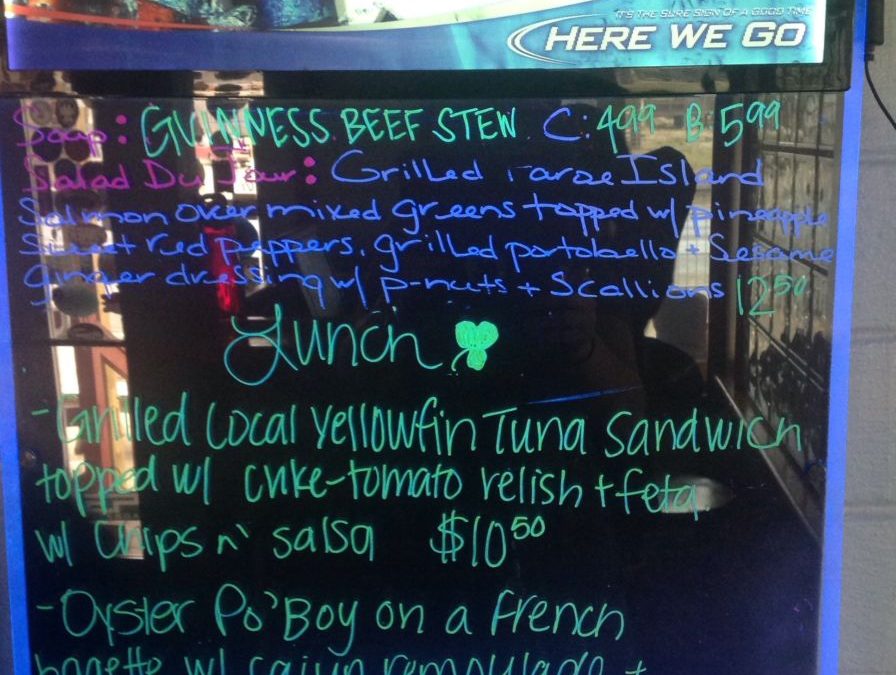 IT'S THE SURE SIGN OF A GOOD TIME
HERE WE GO
Soup: GUINNESS BEEF STEW C: 499 B 599
Salad Du Jour: Grilled Faroe Island
Salmon over mixed greens topped w/ pineapple
Sweet red peppers, grilled portobello + Sesame
Ginger dressing w/ p-nuts + Scallions 12 50
Lunch
- Grilled Local Yellowfin Tuna Sandwich
topped w/ cuke-tomato relish + feta
w/ Chips n' salsa $10 50
- Oyster Po' Boy on a French
w/ cajun remoulade +